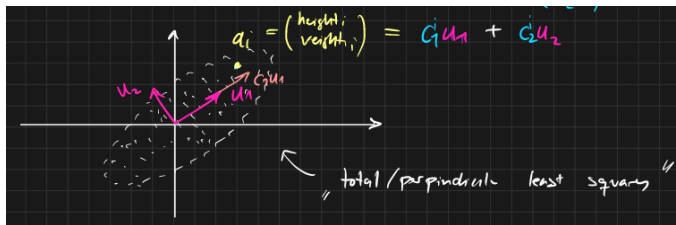 aᵢ = (heightᵢ weightᵢ) = c₁ⁱu₁ + c₂ⁱu₂
u₂
u₁
c₁ⁱu₁
"total/perpindicular least squares"